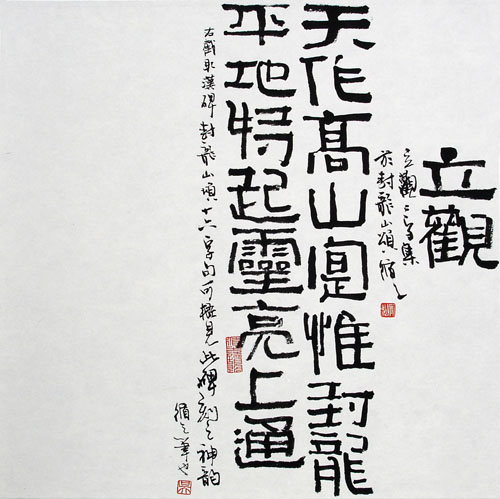 立觀
立觀二字集
於封龍山頌
天作高山寔惟封龍
平地特起靈亮上通
右截取漢碑封龍山頌十六字句可見此碑刻之神韵